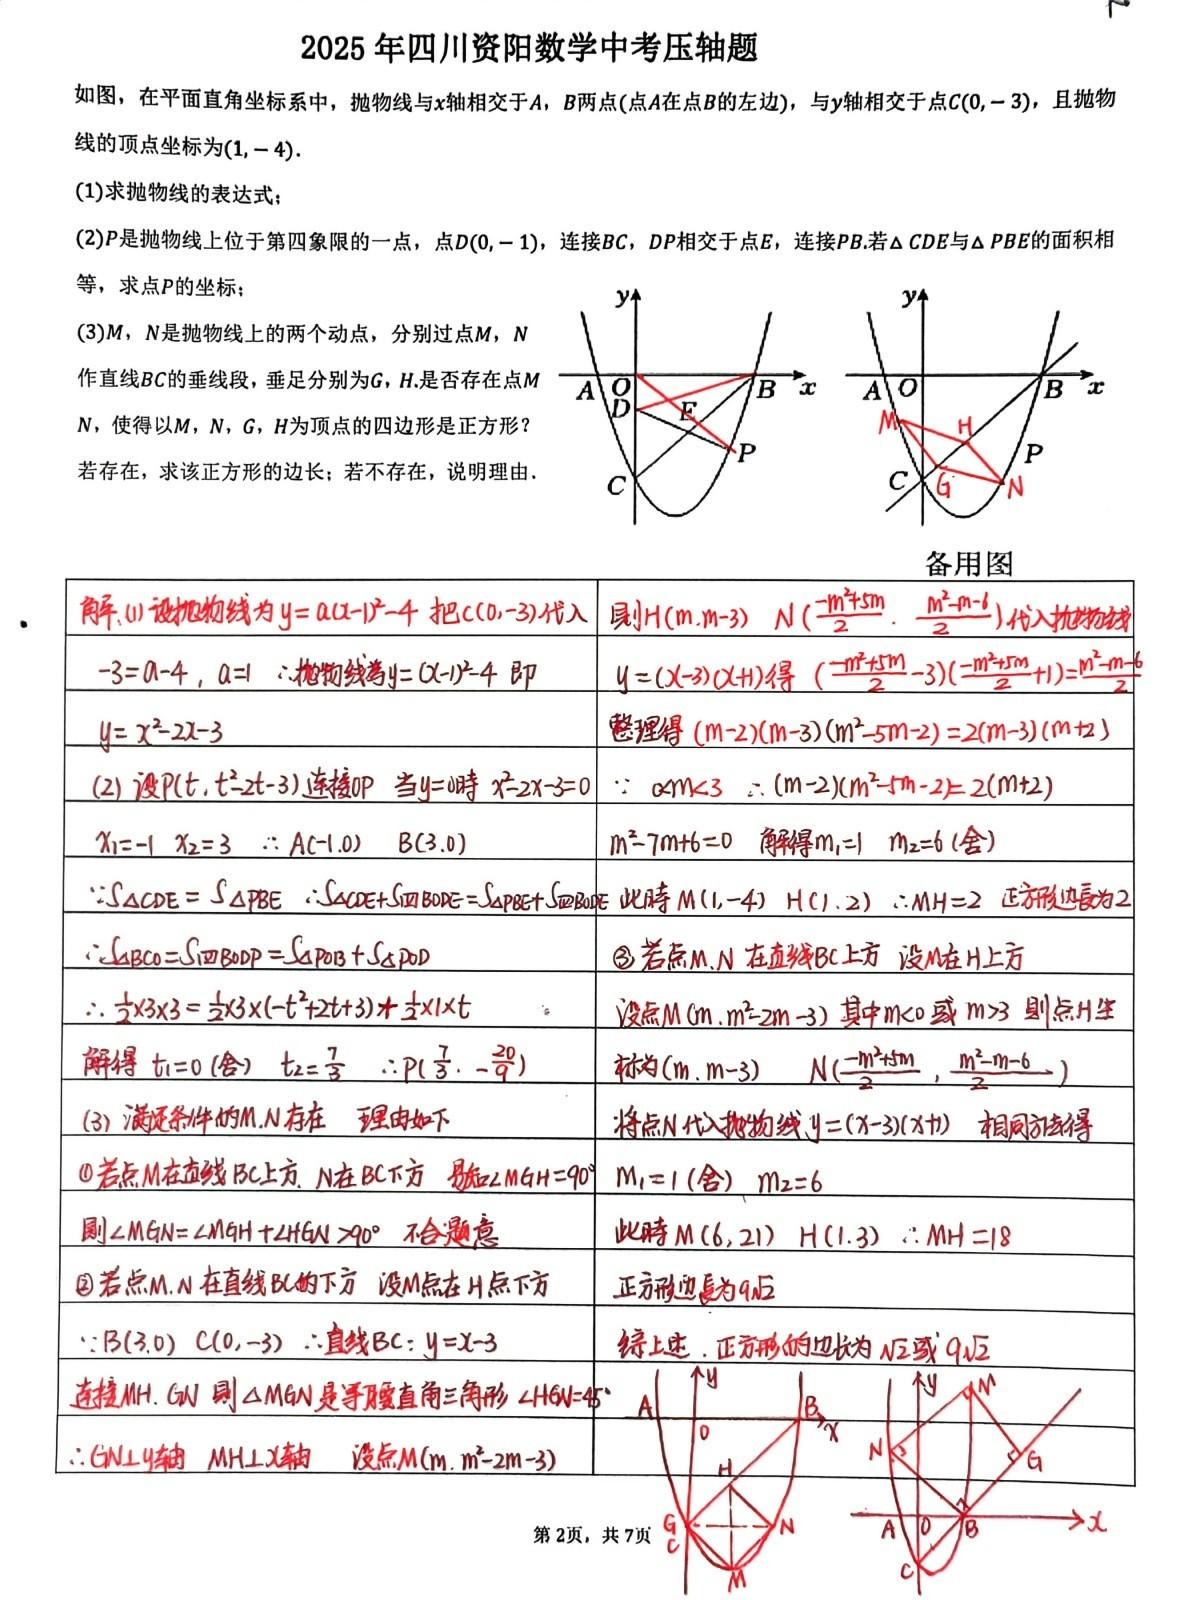 2025年四川资阳数学中考压轴题
如图，在平面直角坐标系中，抛物线与x轴相交于A，B两点(点A在点B的左边)，与y轴相交于点C(0,-3)，且抛物
线的顶点坐标为(1,-4).
(1)求抛物线的表达式；
(2)P是抛物线上位于第四象限的一点，点D(0,-1)，连接BC，DP相交于点E，连接PB.若△CDE与△PBE的面积相
等，求点P的坐标；
(3)M，N是抛物线上的两个动点，分别过点M，N
作直线BC的垂线段，垂足分别为G，H.是否存在点M
N，使得以M，N，G，H为顶点的四边形是正方形？
若存在，求该正方形的边长；若不存在，说明理由.
y
A O B x
D E
P
C
y
A O B x
M H
P
C G N
备用图
解:(1)设抛物线为y=a(x-1)²-4 把C(0,-3)代入
-3=a-4，a=1 ∴抛物线为y=(x-1)²-4 即
y=x²-2x-3
(2) 设P(t, t²-2t-3) 连接OP 当y=0時 x²-2x-3=0
x₁=-1 x₂=3 ∴A(-1.0) B(3.0)
∵S△CDE=S△PBE ∴S△CDE+S四BODE=S△PBE+S四BODE
∴S△BCO=S四BODP=S△POB+S△POD
∴½×3×3=½×3×(-t²+2t+3)+½×1×t
解得 t₁=0(舍) t₂=7/3 ∴P(7/3. -20/9)
(3) 满足条件的M.N存在 理由如下
①若点M在直线BC上方. N在BC下方 易知∠MGH=90°
则∠MGN=∠MGH+∠HGN>90° 不合题意
②若点M.N在直线BC的下方 设M点在H点下方
∵B(3.0) C(0,-3) ∴直线BC: y=x-3
连接MH. GN 则△MGN是等腰直角三角形 ∠HGN=45°
∴GN⊥y轴 MH⊥x轴 设点M(m. m²-2m-3)
则H(m.m-3) N((-m²+5m)/2 . (m²-m-6)/2)代入抛物线
y=(x-3)(x+1)得 ((-m²+5m)/2-3)((-m²+5m)/2+1)=(m²-m-6)/2
整理得 (m-2)(m-3)(m²-5m-2)=2(m-3)(m+2)
∵ 0<m<3 ∴(m-2)(m²-5m-2)=2(m+2)
m²-7m+6=0 解得m₁=1 m₂=6(舍)
此時M(1,-4) H(1.2) ∴MH=2 正方形边長为2
③若点M.N在直线BC上方 设M在H上方
设点M(m.m²-2m-3) 其中m<0或m>3 则点H坐
标为(m.m-3) N((-m²+5m)/2 , (m²-m-6)/2)
将点N代入抛物线y=(x-3)(x+1) 相同方法得
m₁=1(舍) m₂=6
此時M(6,21) H(1.3) ∴MH=18
正方形边長为9√2
综上述.正方形的边长为√2或9√2
A y B
O x
H
G N
C
M
y M
N G
A O B x
C
第2页，共7页